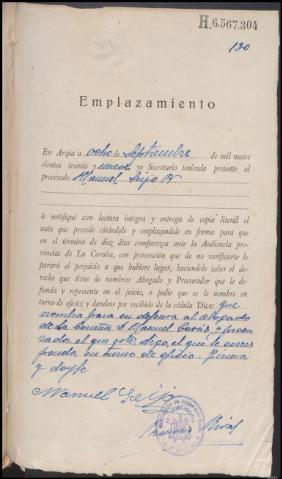 H.6.567.304
130
Emplazamiento
En Arzúa a ocho de Septiembre de mil nueve
cientos treinta y nueve yo Secretario teniendo presente al
procesado Manuel Seijo
le notifiqué con lectura íntegra y entrega de copia literál el
auto que precede citándole y emplazándole en forma para que
en el término de diez días comparezca ante la Audiencia pro-
vincias de La Coruña, con prevención que de no verificarlo le
parará el perjuicio a que hubiere lugar, haciéndole saber el de-
recho que tiene de nombrar Abogado y Procurador que le de-
fienda y represente en el juicio, o pedir que se le nombren en
turno de oficio; y dandose por recibido de la cédula Dice: que
nombra para su defensa al abogado
de la Coruña D. Manuel y procu-
rador el que
en turno de oficio. Firma
y doy fe
Manuel Seijo
Rivas